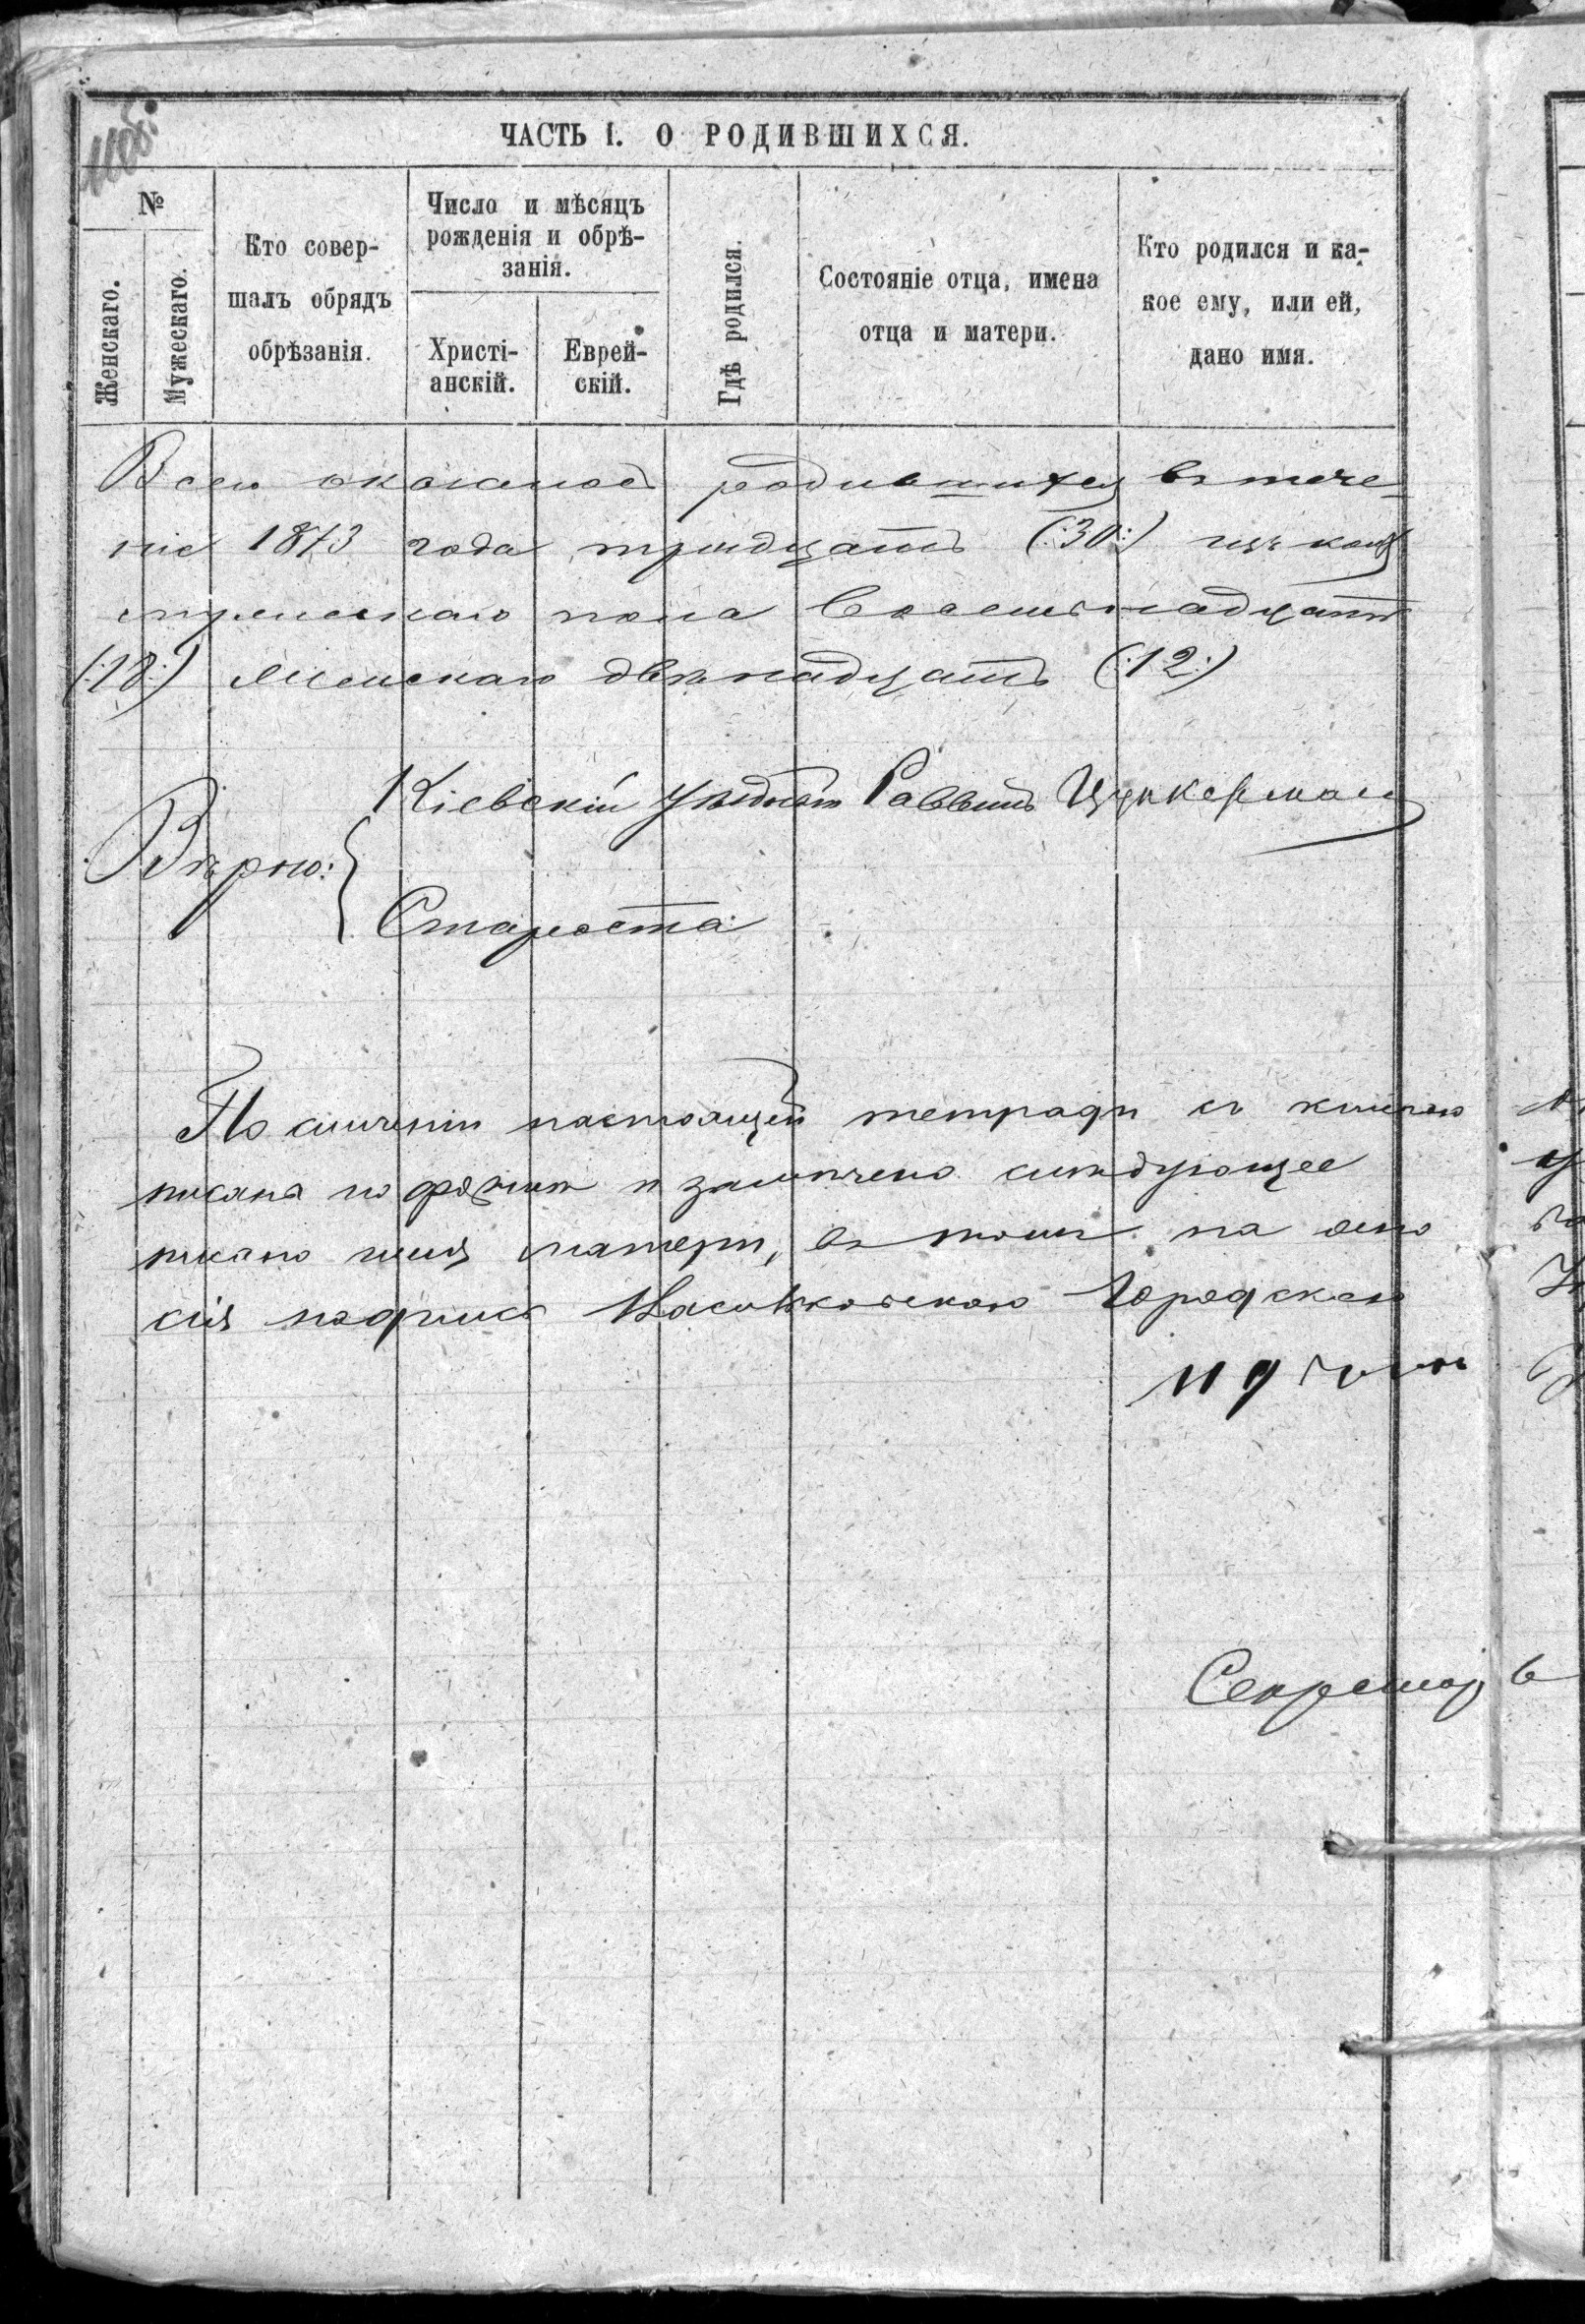 ЧАСТЬ I. О РОДИВШИХСЯ.
№
Женскаго.
Мужескаго.
Кто совер-
шалъ обрядъ
обрѣзанія.
Число и мѣсяцъ
рожденія и обрѣ-
занія.
Христі-
анскій.
Еврей-
скій.
Гдѣ родился.
Состояніе отца, имена
отца и матери.
Кто родился и ка-
кое ему, или ей,
дано имя.
Всего оказалось родившихся въ тече-
ніе 1873 года тридцать (:30:) изъ коихъ
мужескаго пола восемьнадцать
(:18:) женскаго двѣнадцать (:12:)
Кіевскій Уѣздный Раввинъ Цукерман
Вѣрно:
Староста
По сличеніи настоящей тетради съ книгою
писана по формѣ и замѣчено слѣдующее
писано имя матери, въ томъ на осно
сія подпись Васильковскою Городскою
Секретарь